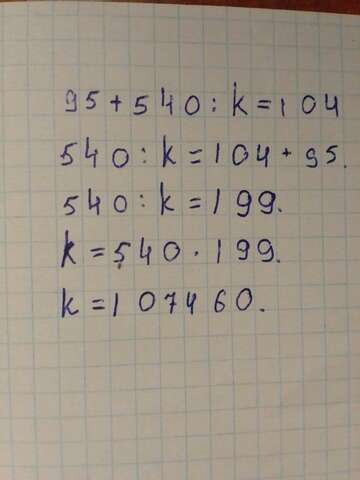 95 + 540 : k = 104
540 : k = 104 + 95.
540 : k = 199.
k = 540 · 199.
k = 107460.